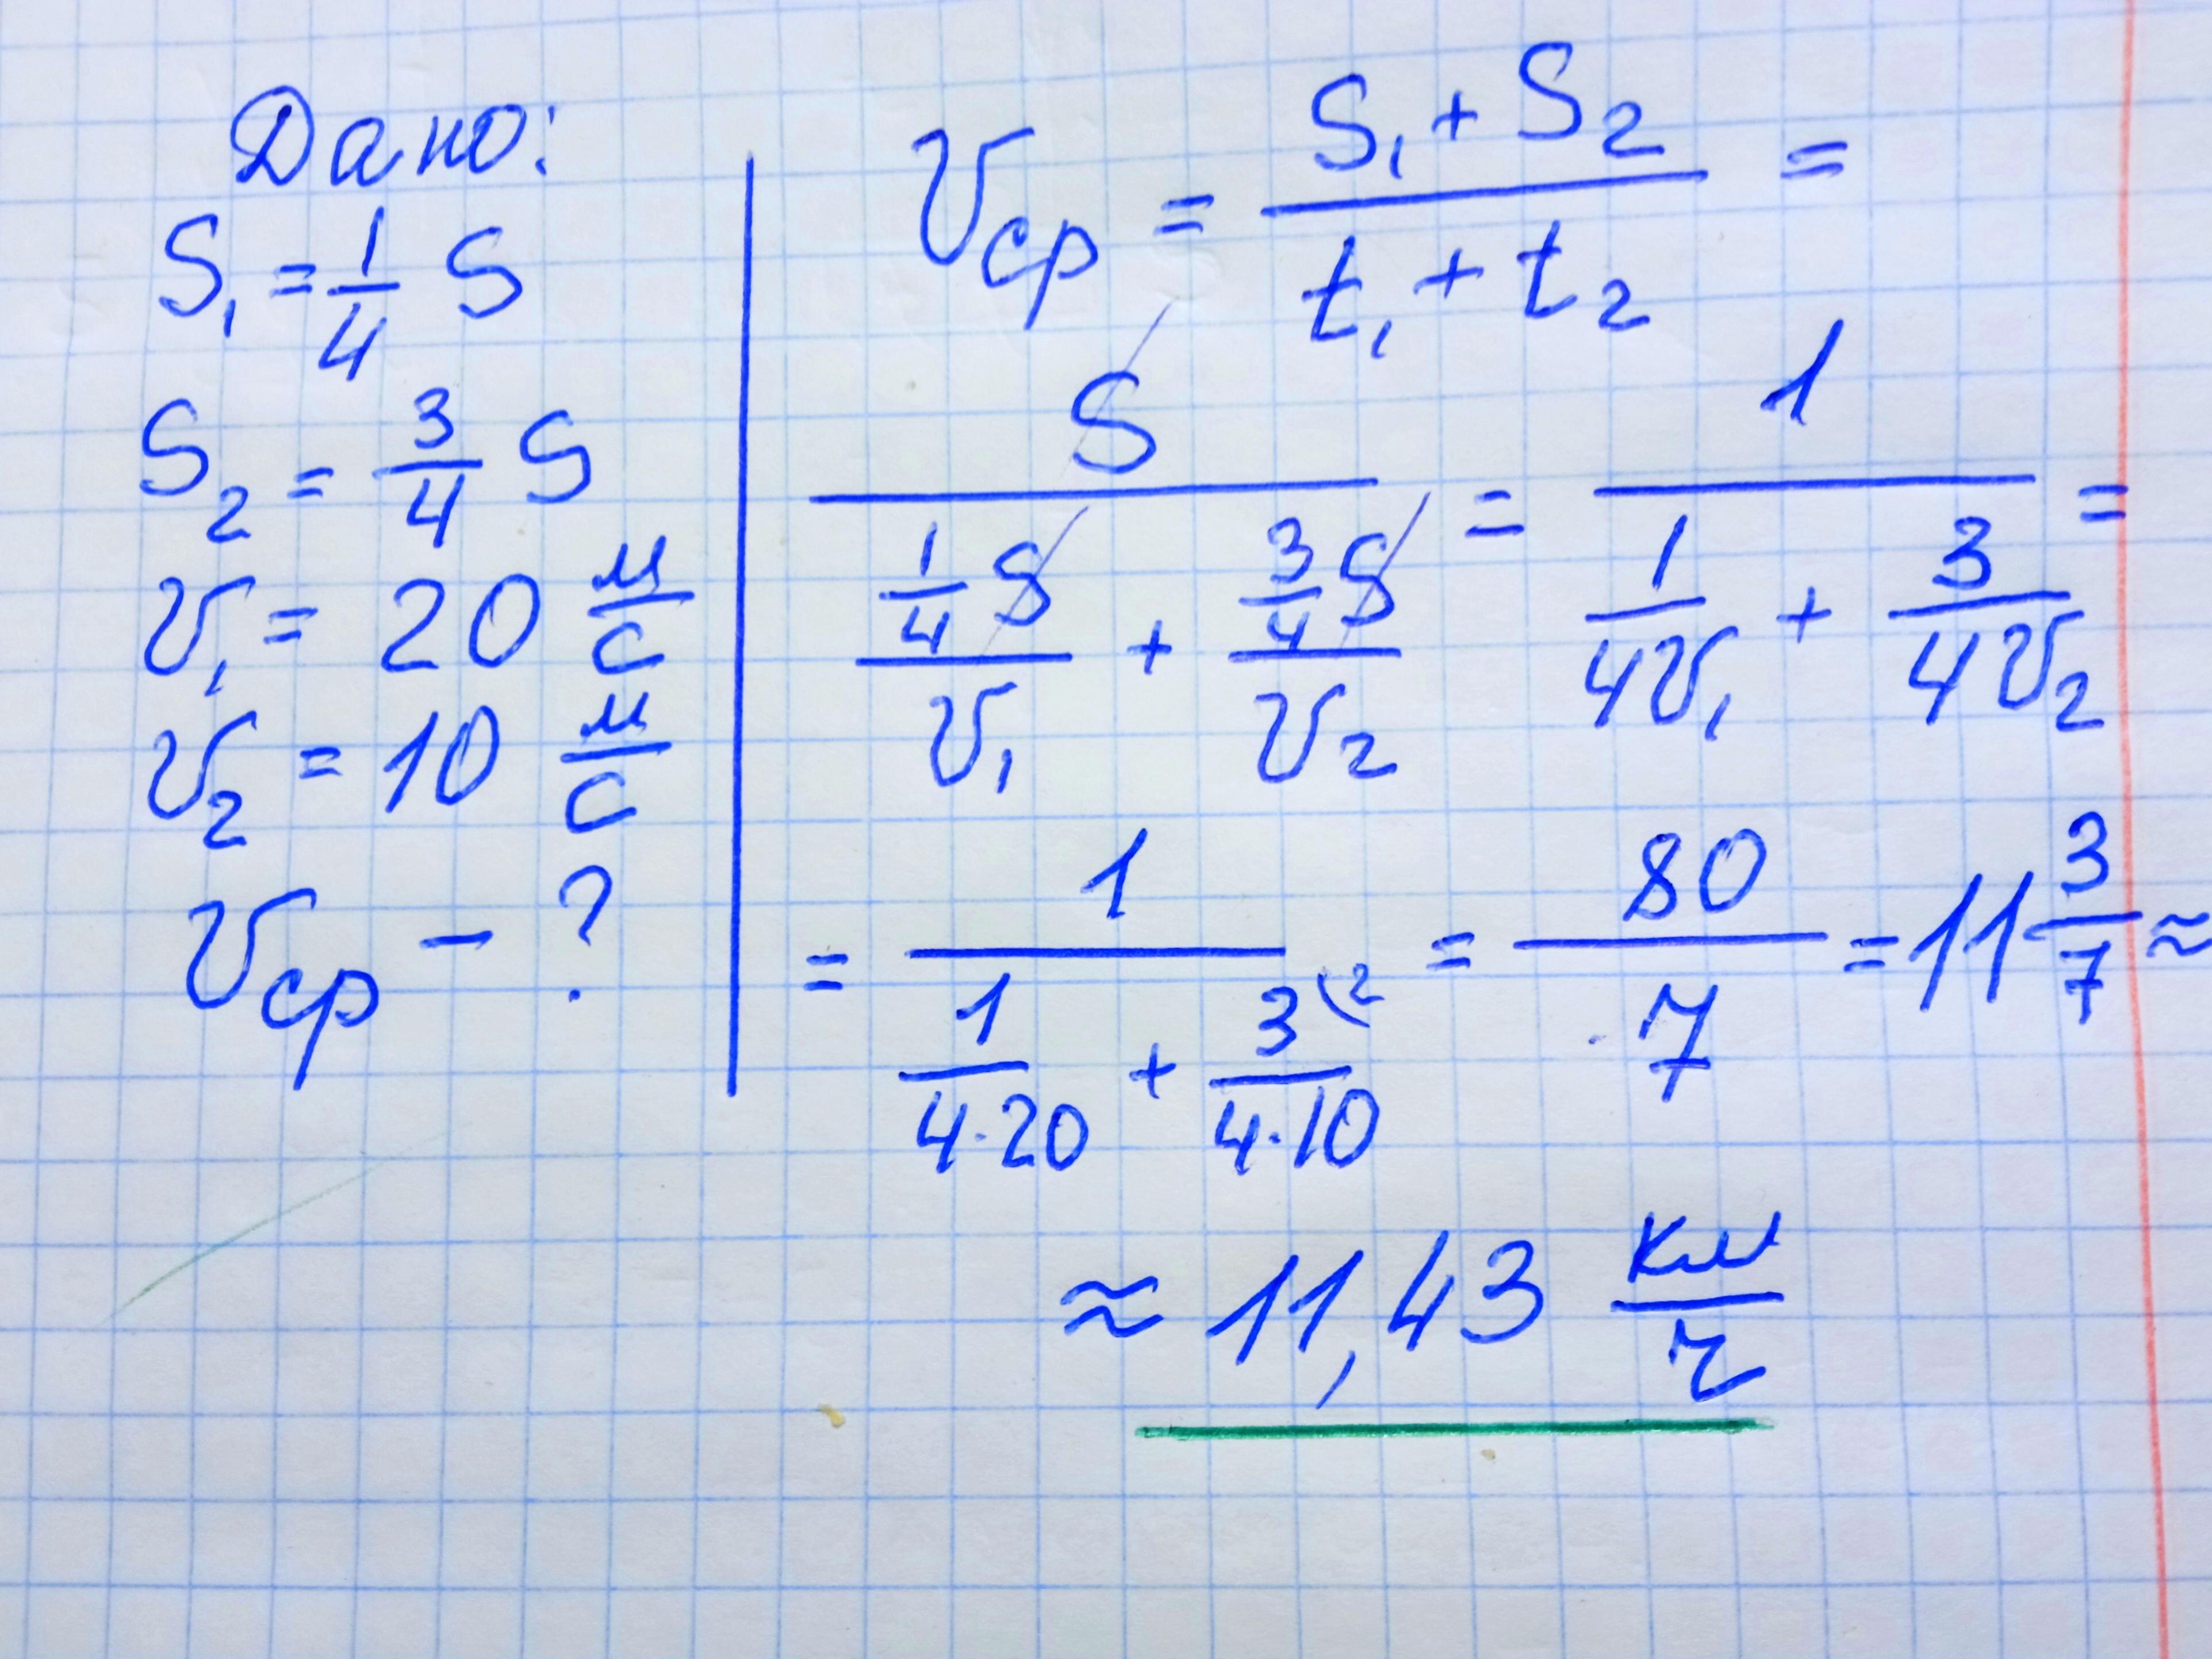 Дано:
S₁ = 1/4 S
S₂ = 3/4 S
v₁ = 20 м/с
v₂ = 10 м/с
vср – ?
vср = (S₁ + S₂)/(t₁ + t₂) =
S/((1/4 S)/v₁ + (3/4 S)/v₂) = 1/(1/(4v₁) + 3/(4v₂)) =
= 1/(1/(4·20) + 3⁽²/(4·10)) = 80/7 = 11 3/7 ≈
≈ 11,43 км/г